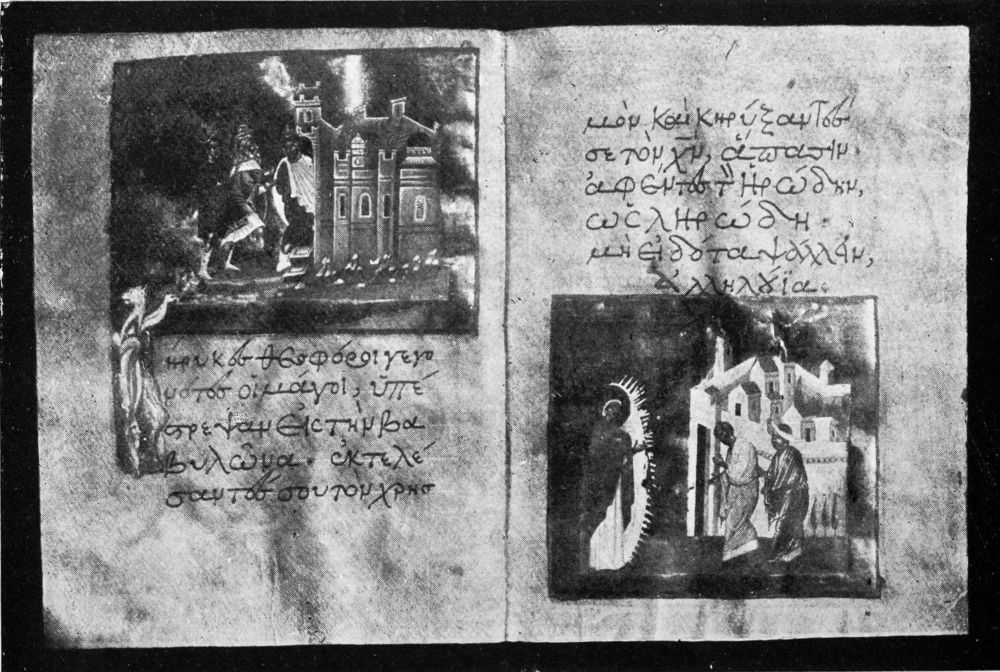 Κήρυκες θεοφόροι γεγο
νότες οἱ μάγοι, ὑπέ
στρεψαν εἰς τὴν βα
βυλῶνα. ἐκτελέ
σαντές σου τὸν χρησ
μὸν, καὶ κηρύξαντές
σε τὸν χν, ἅπασιν
ἀφέντες τὸν ἡρώδην,
ὡς ληρώδη
μὴ εἰδότα ψάλλειν,
ἀλληλούϊα.